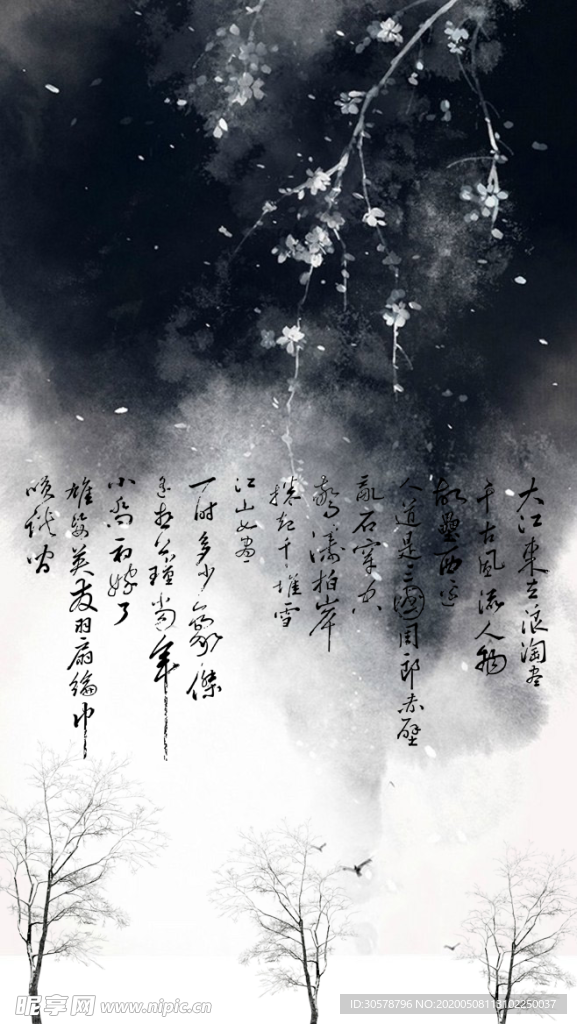 大江東去浪淘盡
千古風流人物
故壘西邊
人道是三國周郎赤壁
亂石穿空
驚濤拍岸
捲起千堆雪
江山如畫
一時多少豪傑
遙想公瑾當年
小喬初嫁了
雄姿英發羽扇綸巾
談笑間
昵享网 www.nipic.cn
ID:30578796 NO:20200508113102250037